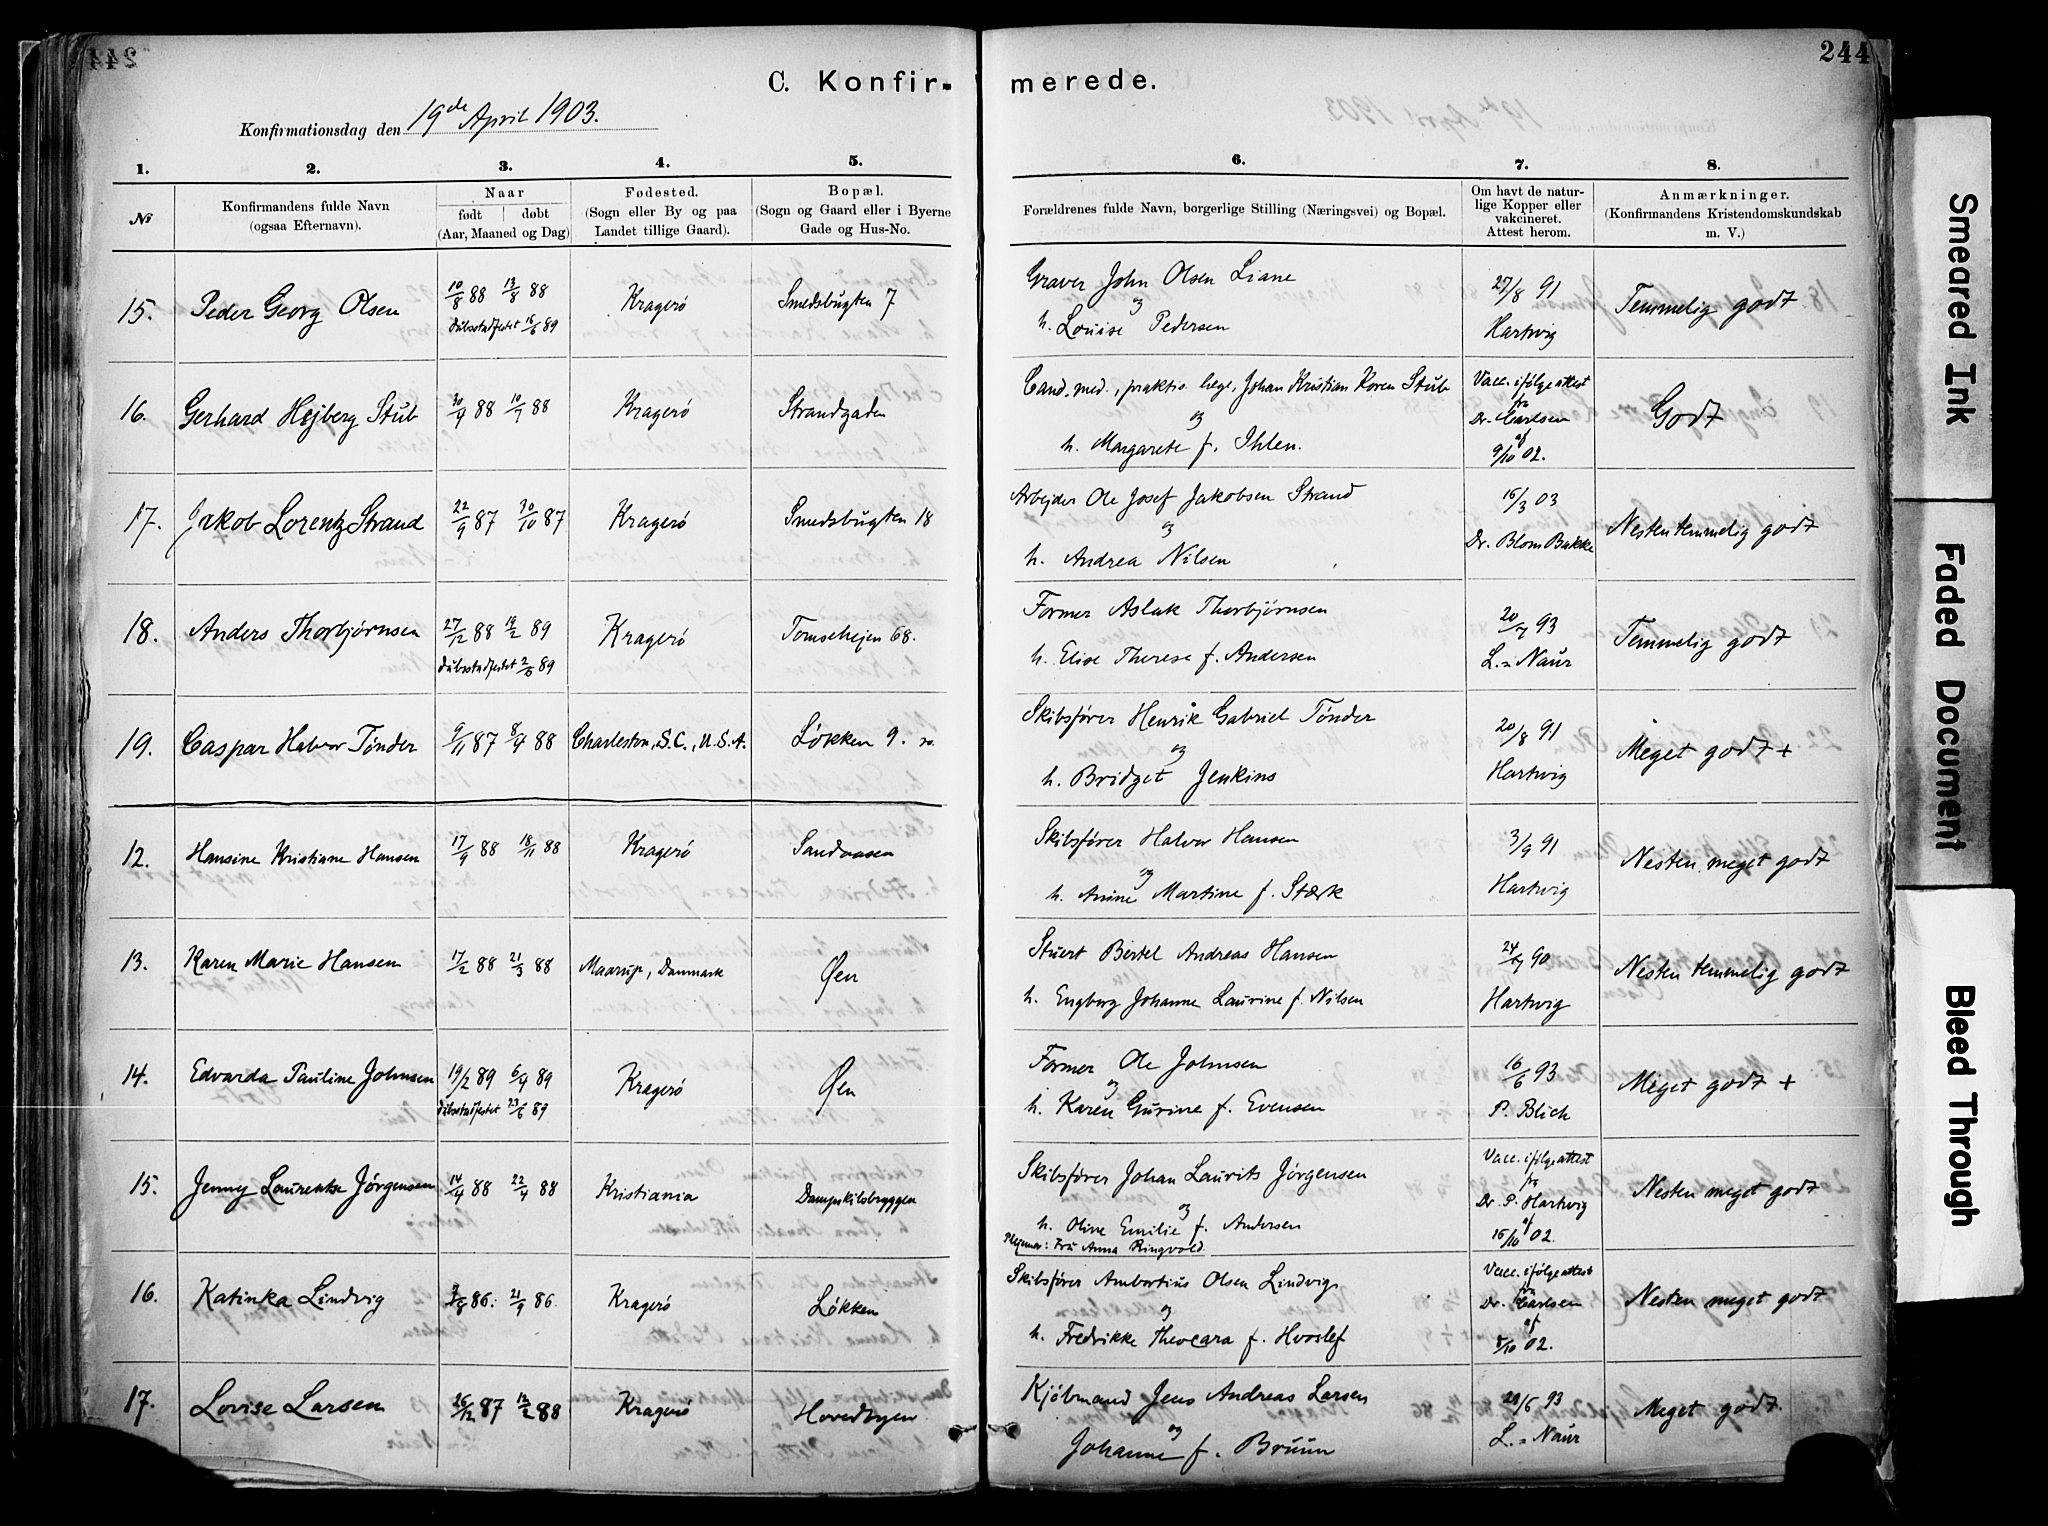 244
C. Konfirmerede.
Konfirmationsdag den 19de April 1903.
1. 2. 3. 4. 5. 6. 7. 8.
№
Konfirmandens fulde Navn
(ogsaa Efternavn).
Naar
født døbt
(Aar, Maaned og Dag)
Fødested.
(Sogn eller By og paa
Landet tillige Gaard).
Bopæl.
(Sogn og Gaard eller i Byerne
Gade og Hus-No.
Forældrenes fulde Navn, borgerlige Stilling (Næringsvei) og Bopæl.
Om havt de natur-
lige Kopper eller
vakcineret.
Attest herom.
Anmærkninger.
(Konfirmandens Kristendomskundskab
m. V.)
15. Peder Georg Olsen 10/8 88 13/8 88 Kragerö Smedsbugten 7
daabsstadfestet 16/6 89
Graver John Olsen Liane
og
h. Louise Pedersen
27/8 91
Hartvig
Temmelig godt
16. Gerhard Hejberg Stub 30/4 88 10/7 88 Kragerö Strandgaden
Cand. med., praktis. læge, Johan Kristian Koren Stub
og
h. Margarete f. Ihlen.
Vacc. ifølge attest
fra
Dr. Carlsen
af
9/10 02.
Godt
17. Jakob Lorentz Strand 22/9 87 30/10 87 Kragerö Smedsbugten 18
Arbejder Ole Josef Jakobsen Strand
og
h. Andrea Nilsen
16/3 03
Dr. Blom Bakke
Nesten temmelig godt
18. Anders Thorbjørnsen 27/12 88 19/2 89 Kragerö 68.
daabsstadfestet 89
Former Aslak Thorbjørnsen
h. Elise Therese f. Andersen
20/7 93
L. = Naur
Temmelig godt
19. Caspar Halvor Tönder 9/11 87 8/4 88 Charleston, S.C., U.S.A. Løkken 9.
Skibsfører Henrik Gabriel Tönder
og
h. Bridget Jenkins
20/8 91
Hartvig
Meget godt +
12. Hansine Kristiane Hansen 17/9 88 18/11 88 Kragerö Sandaasen
Skibsfører Halvor Hansen
og
h. Anine Martine f. Stærk
3/9 91
Hartvig
Nesten meget godt
13. Karen Marie Hansen 17/2 88 21/3 88 Maarup, Danmark Øen
Stuert Bertel Andreas Hansen
h. Engborg Johanne Laurine f. Nilsen
24/7 90
Hartvig
Nesten temmelig godt
14. Edvarda Pauline Johnsen 19/2 89 6/4 89 Kragerö Øen
daabsstadfestet 23/6 89
Former Ole Johnsen
og
h. Karen Gurine f. Evensen
16/6 93
P. Blich
Meget godt +
15. Jenny Laurentze Jørgensen 14/4 88 22/4 88 Kristiania Dampskibsbryggen
Skibsfører Johan Laurits Jörgensen
og
h. Oline Emilie f. Andersen
Plejemor: Fru Anna Ringvold
Vacc. ifølge attest
fra
Dr. P. Hartvig
af
15/10 02.
Nesten meget godt
16. Katinka Lindvig 86. 21/9 86. Kragerö Løkken
Skibsfører Ambortius Olsen Lindvig
og
h. Fredrikke Theocara f. Hvoslef
Vacc. ifølge attest
fra
Dr. Carlsen
af
8/10 02.
Nesten meget godt
17. Lovise Larsen 26/12 87 12/2 88 Kragerö Hovedbyen
Kjöbmand Jens Andreas Larsen
og
Johanne f. Bruun
29/6 93
L. = Naur
Meget godt.
Smeared Ink
Faded Document
Bleed Through